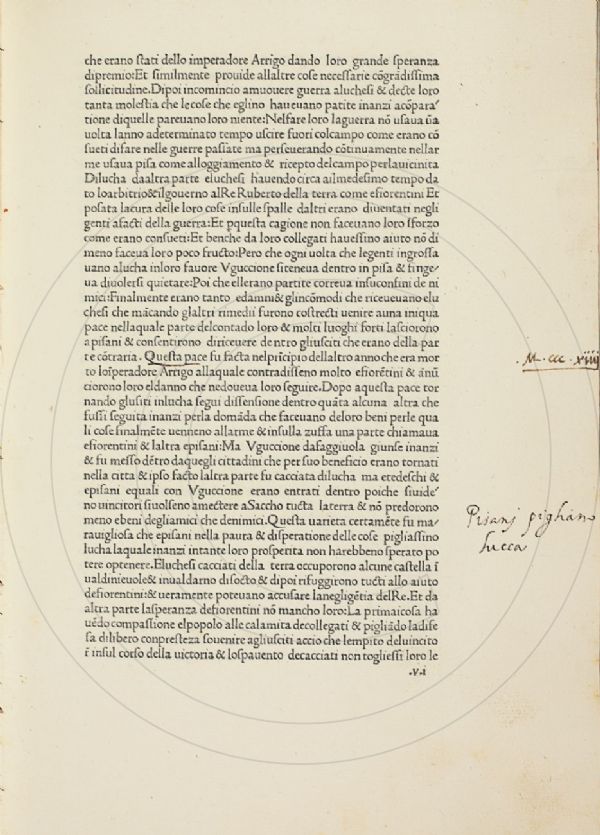 che erano stati dello imperadore Arrigo dando loro grande speranza
di premio: Et similmente prouide allaltre cose necessarie cōgrādissima
sollicitudine. Dipoi incomincio amuouere guerra aluchesi & decte loro
tanta molestia che lecose che eglino haueuano patite inanzi acōpara⸗
tione diquelle pareuano loro niente: Nelfare loro laguerra nō usaua ūa
uolta lanno adeterminato tempo uscire fuori colcampo come erano cō
sueti disare nelle guerre passate ma perseuerando cōtinuamente nellar
me usaua pisa come alloggiamento & ricepto delcampo perlauicinita
Dilucha daaltra parte eluchesi hauendo circa ailmedesimo tempo da
to loarbitrio&ilgouerno alRe Ruberto della terra come efiorentini Et
posata lacura delle loro cose insulle spalle daltri erano diuentati negli
genti afacti della guerra: Et pquesta cagione non faceuano loro sforzo
come erano consueti: Et benche da loro collegati hauessino aiuto nō di
meno faceua loro poco fructo: Pero che ogni uolta che legenti ingrossa
uano alucha inloro fauore Vguccione siteneua dentro in pisa & finge⸗
ua diuolersi quietare: Poi che ellerano partite correua insuconfini de ni
mici: Finalmente erano tanto edamni& glincōmodi che riceueuano elu
chesi che mācando glaltri rimedii furono costrecti uenire auna iniqua
pace nellaquale parte delcontado loro & molti luoghi forti lasciorono
apisani & consentirono diriceuere dentro gliusciti che erano della par
te cōtraria. Questa pace fu facta nelprīcipio dellaltro anno che era mor
to loīperadore Arrigo allaquale contradisseno molto efiorētini & ānū
ciorono loro eldanno che nedoueua loro seguire. Dopo aquesta pace tor
nando glusciti inlucha segui dissensione dentro quāta alcuna altra che
fussi seguita inanzi perla domāda che faceuano deloro beni perle qua
li cose finalmēte uenneno allarme & insulla zuffa una parte chiamaua
efiorentini & laltra episani: Ma Vguccione dafaggiuola giunse inanzi
& fu messo dētro daquegli cittadini che per suo beneficio erano tornati
nella citta & ipso facto laltra parte fu cacciata dilucha ma etedeschi et
episani equali con Vguccione erano entrati dentro poiche siuide⸗
no uincitori siuolseno amectere aSaccho tucta laterra & nō predorono
meno ebeni degliamici che denimici. Questa uarieta certamēte fu ma⸗
rauigliosa che episani nella paura & disperatione delle cose pigliassino
lucha laquale inanzi intante loro prosperita non harebbeno sperato po
tere optenere. Eluchesi cacciati della terra occuporono alcune castella ī
ualdinieuole& inualdarno disocto & dipoi rifuggirono tucti allo aiuto
defiorentini: & ueramente poteuano accusare lanegligētia delRe. Et da
altra parte lasperanza defiorentini nō mancho loro: La primacosa ha
uēdo compassione elpopolo alle calamita decollegati & pigliādo ladife
sa dilibero conprestezza souenire agliusciti accio che lempito deluincito
ī insul corso della uictoria & lospauento decacciati non togliessi loro le
.v.i
.M. ccc. xiiij
Pisanj pighano
lucca